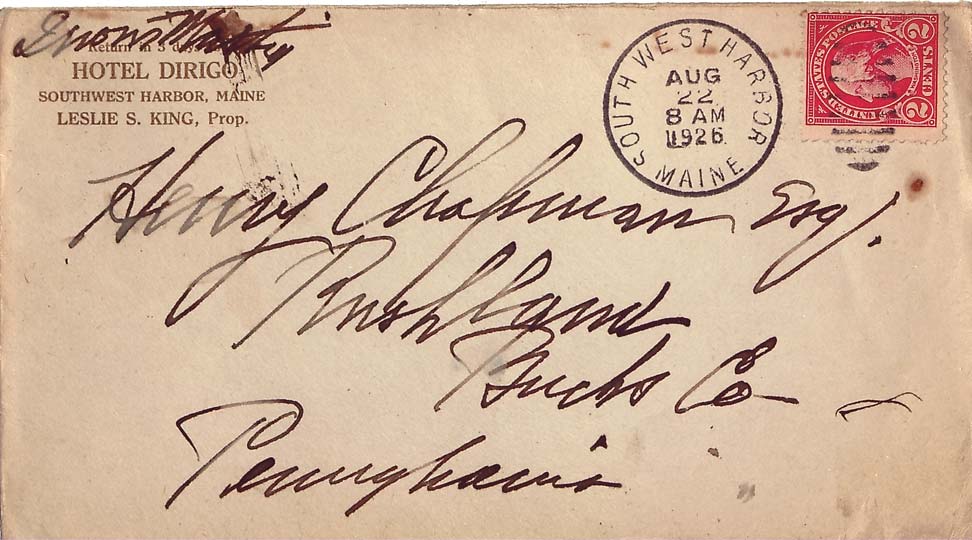 Return in 5 days
HOTEL DIRIGO
SOUTHWEST HARBOR, MAINE
LESLIE S. KING, Prop.
SOUTH WEST HARBOR
AUG
22
8 AM
1926
MAINE
UNITED STATES POSTAGE
2 CENTS 2
Henry Chapman Esq.
Rushland
Bucks Co
Pennsylvania